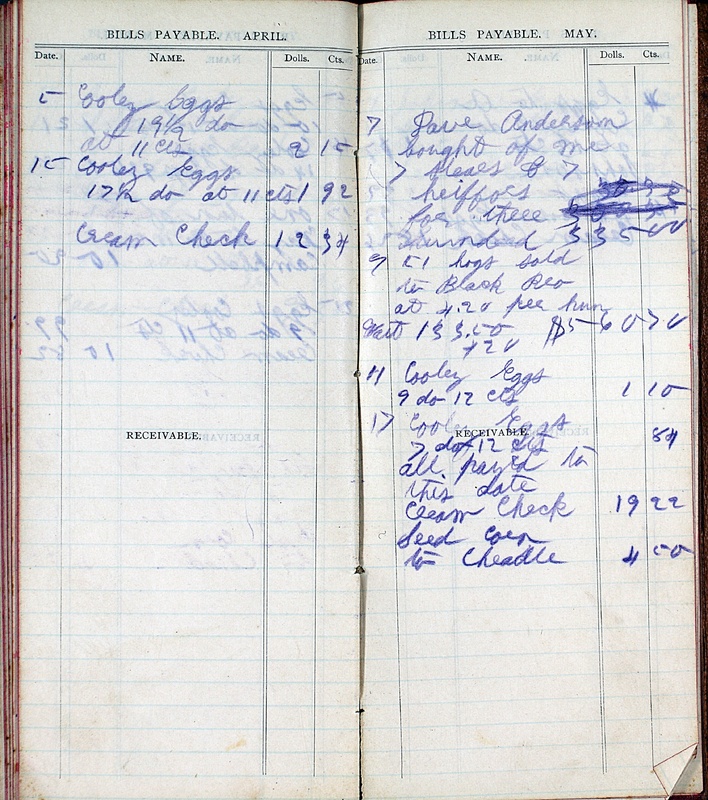 BILLS PAYABLE. APRIL.
Date. NAME. Dolls. Cts.
5 Cooley Eggs
19½ do
at 11 cts 2 15
15 Cooley Eggs
17½ do at 11 cts 1 92
Cream Check 12 34
RECEIVABLE.
BILLS PAYABLE. MAY.
Date. NAME. Dolls. Cts.
7 Dave Anderson
bought of me
7 steers & 7
heiffers
for three
hundred 335 00
9 51 hogs sold
to Black Reo
at 4.20 per hun
Wait 133.50 $560 70
420
11 Cooley Eggs
9 do 12 cts 1 10
17 Cooley Eggs
RECEIVABLE.
7 do 12 cts 84
all payed to
this date
Cream Check 19 22
Seed corn
to Cheadle 4 50